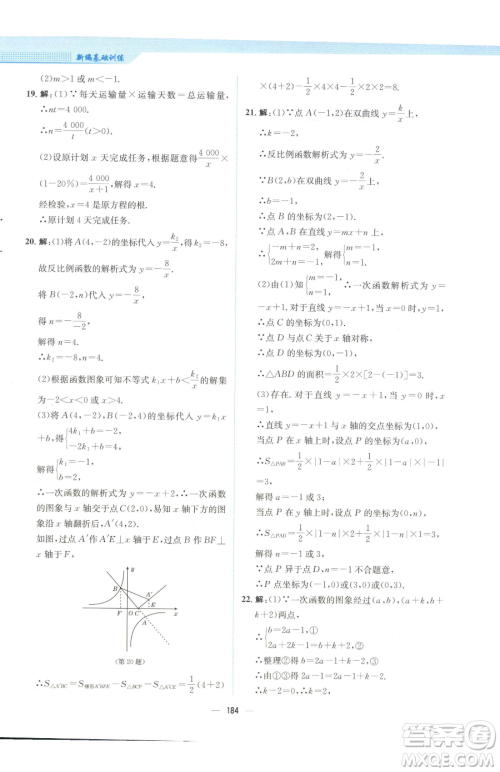 新编基础训练
(2)m>1 或 m<-2.
19. 解:(1)∵每天运输量×运输天数=总运输量,
∴nt=4 000.
∴n=4 000/t(t>0).
(2)设原计划 x 天完成任务,根据题意得 4 000/x×
(1-20%)=4 000/(x+1),解得 x=4.
经检验,x=4 是原方程的根.
∴原计划 4 天完成任务.
20. 解:(1)将 A(4,-2)的坐标代入 y=k₂/x,得 k₂=-8,
故反比例函数的解析式为 y=-8/x.
将 B(-2,n)代入 y=-8/x,
得 n=4.
∴k₂=-8,n=4.
(2)根据函数图象可知不等式 k₁x+b<k₂/x 的解集
为-2<x<0 或 x>4.
(3)将 A(4,-2),B(-2,4)的坐标代入 y=k₁x
+b,得{4k₁+b=-2, -2k₁+b=4,
解得{k₁=-1, b=2.
∴一次函数的解析式为 y=-x+2.
∴一次函数与 x 轴交于点 C(2,0),将 x 轴下方的图
象沿 x 轴翻折后,A′(4,2).
如图,过点 A′作 A′E⊥x 轴于点 E,过点 B 作 BF⊥
x 轴于点 F,
(第 20 题)
∴S△A′BC=S梯形A′BFE-S△BCF-S△A′CE=1/2(4+2)
×(4+2)-1/2×4×4-1/2×2×2=8.
21. 解:(1)∵点 A(-1,2)在双曲线 y=k/x上,
∴k=-2.
∴反比例函数解析式为 y=-2/x.
∵B(2,b)在双曲线 y=-2/x上,
∴b=-1.
∴点 B 的坐标为(2,-1).
∵点 A,B 在直线 y=mx+n 上,
∴{-m+n=2, 2m+n=-1. 解得{m=-1, n=1.
(2)由(1)知{m=-1, n=1. ∴一次函数解析式为 y=
-x+1. ∴对于直线 y=-x+1,令 x=0,则 y=1.
∴点 C 的坐标为(0,1).
∵点 D 与点 C 关于 x 轴对称,
∴点 D 的坐标为(0,-1).
∴△ABD 的面积=1/2×2×[2-(-1)]=3.
(3)存在.对于直线 y=-x+1,令 y=0,则 x=1.
∴直线 y=-x+1 与 x 轴的交点坐标为(1,0).
当点 P 在 x 轴上时,设点 P 的坐标为(a,0),
∴S△PAB=1/2×|1-a|×2+1/2×|1-a|×1=3.
解得 a=-1 或 3;
当点 P 在 y 轴上时,设点 P 的坐标为(0,b),
∴S△PAB=1/2×|1-b|×2+1/2×|1-b|×1=3.
解得 b=-1 或 3.
∵点 P 异于点 D,∴点(0,-1)不合题意.
∴点 P 的坐标为(-1,0)或(3,0)或(0,3).
22. 解:(1)∵一次函数的图象经过(a,b),(a+k,b
+k+2)两点,
∴{b=2a-1,① b+k+2=2(a+k)-1.②
整理②得 b=2a-1+k-2.
∴由①②得 2a-1=2a-1+k-2.
184